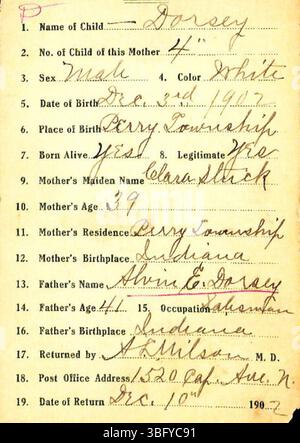 P
1. Name of Child — Dorsey
2. No. of Child of this Mother 4"
3. Sex Male 4. Color White
5. Date of Birth Dec. 3rd 1907
6. Place of Birth Perry Township
7. Born Alive Yes 8. Legitimate Yes
9. Mother's Maiden Name Clara Sluck
10. Mother's Age 39
11. Mother's Residence Perry Township
12. Mother's Birthplace Indiana
13. Father's Name Alvin E. Dorsey
14. Father's Age 41 15. Occupation Salesman
16. Father's Birthplace Indiana
17. Returned by A E Wilson M. D.
18. Post Office Address 1520 Cap. Ave. N.
19. Date of Return Dec. 10" 1907